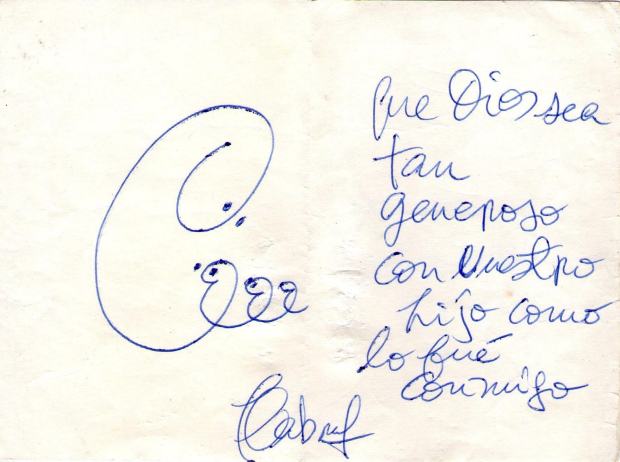 Que Dios sea
tan
generoso
con nuestro
hijo como
lo fué
conmigo
Cabral